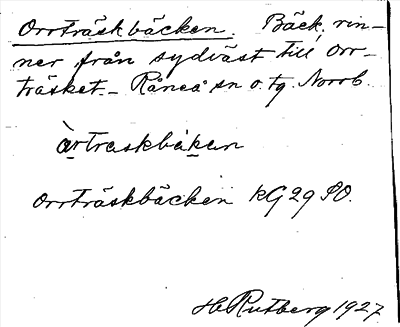 Orrträskbäcken. Bäck, rin-
ner från sydväst till Orr-
träsket. - Råneå sn o. tg. Norrb.
àrtraskbäkan
Orrträskbäcken KG 29 SO.
H. Rutberg 1927